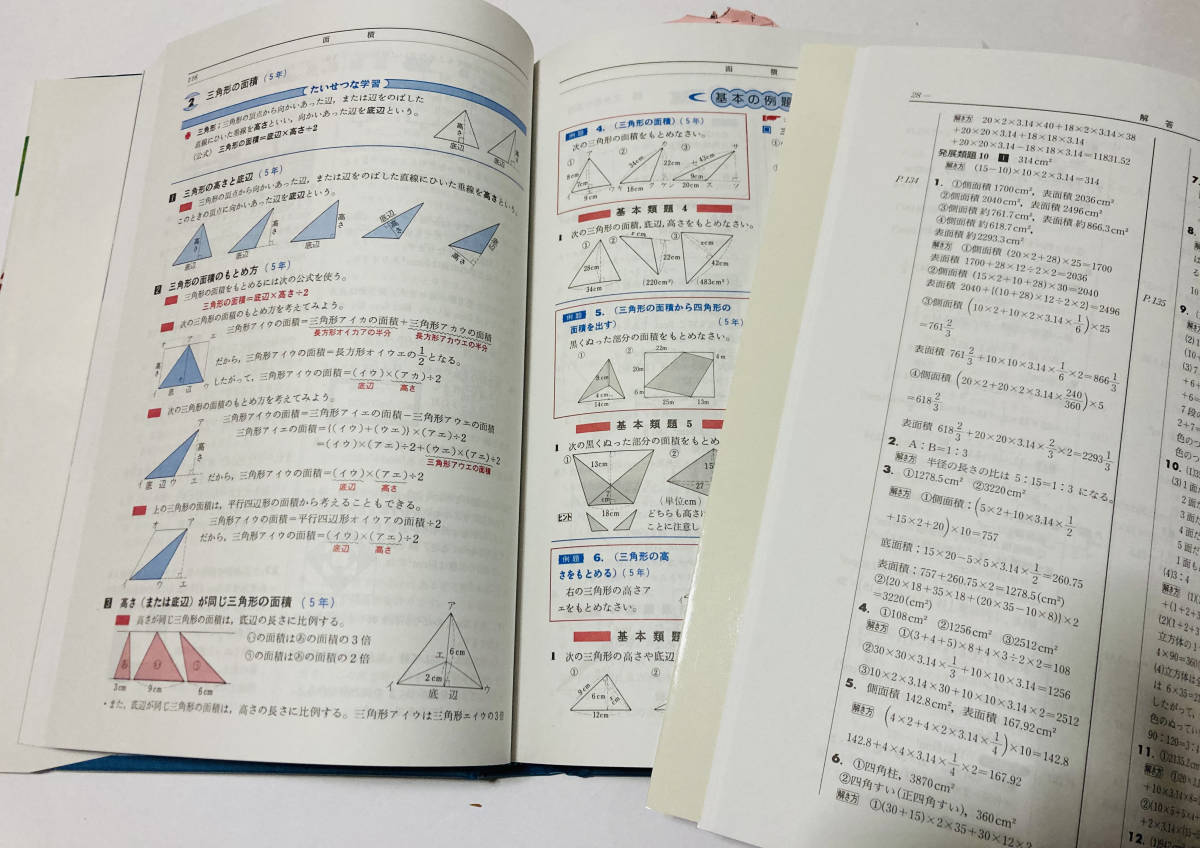 面 積
2 三角形の面積 (5年)
たいせつな学習
三角形:三角形の頂点から向かいあった辺,または辺をのばした
直線にひいた垂線を高さといい,向かいあった辺を底辺という。
(公式) 三角形の面積=底辺×高さ÷2
高さ
底辺
高さ
底辺
1 三角形の高さと底辺 (5年)
三角形の頂点から向かいあった辺,または辺をのばした直線にひいた垂線を高さという。
このときの頂点に向かいあった辺を底辺という。
高さ
底辺
高さ
底辺
高さ
底辺
底辺
高さ
底辺
高さ
2 三角形の面積のもとめ方 (5年)
三角形の面積をもとめるには次の公式を使う。
三角形の面積=底辺×高さ÷2
次の三角形の面積のもとめ方を考えてみよう。
三角形アイウの面積=三角形アイカの面積+三角形アカウの面積
長方形オイカアの半分 長方形アカウエの半分
だから,三角形アイウの面積=長方形オイウエの1/2となる。
したがって,三角形アイウの面積=(イウ)×(アカ)÷2
底辺 高さ
次の三角形の面積のもとめ方を考えてみよう。
三角形アイウの面積=三角形アイエの面積-三角形アウエの面積
三角形アイエの面積={(イウ)+(ウエ)}×(アエ)÷2
=(イウ)×(アエ)÷2+(ウエ)×(アエ)÷2
三角形アウエの面積
だから,三角形アイウの面積=(イウ)×(アエ)÷2
底辺 高さ
上の三角形の面積は,平行四辺形の面積から考えることもできる。
三角形アイウの面積=平行四辺形オイウアの面積÷2
だから,三角形アイウの面積=(イウ)×(アエ)÷2
底辺 高さ
3 高さ(または底辺)が同じ三角形の面積 (5年)
高さが同じ三角形の面積は,底辺の長さに比例する。
㋑の面積は㋐の面積の3倍
㋒の面積は㋐の面積の2倍
3cm 9cm 6cm
ア
エ
6cm
2cm
イ 底辺 ウ
・また,底辺が同じ三角形の面積は,高さの長さに比例する。三角形アイウは三角形エイウの3倍
面 積
基本の例題
例題 4. (三角形の面積)(5年)
次の三角形の面積をもとめなさい。
① ② ③
8cm 7cm 9cm
34cm 22cm 18cm
43cm 9cm 20cm
基本類題 4
1 次の三角形の面積,底辺,高さをもとめなさい。
① ② ③
28cm 34cm
xcm (220cm²)
xcm 42cm (483cm²)
例題 5. (三角形の面積から四角形の
面積を出す) (5年)
黒くぬった部分の面積をもとめなさい。
① ②
9cm 4cm 14cm
22m 4m 20m 6m 25m 13m
基本類題 5
1 次の黒くぬった部分の面積をもとめ
① ②
13cm
7cm
18cm
15
27
(単位cm)
ヒント
どちらも高さ
ことに注意し
例題 6. (三角形の高
さをもとめる)(5年)
右の三角形の高さア
エをもとめなさい。
基本類題
1 次の三角形の高さや底辺
9cm 6cm 12cm
28
解 答
解き方 20×2×3.14×40+18×2×3.14×38
+20×20×3.14+18×18×3.14
+20×20×3.14-18×18×3.14=11831.52
発展類題10 1 314cm²
解き方 (15-10)×10×2×3.14=314
P.134
1. ①側面積 1700cm², 表面積 2036cm²
②側面積 2040cm², 表面積 2496cm²
③側面積 約761.7cm², 表面積 約866.3cm²
④側面積 約618.7cm²,
表面積 約2293.3cm²
解き方 ①側面積 (20×2+28)×25=1700
表面積 1700+28×12÷2×2=2036
②側面積 (15×2+10+28)×30=2040
表面積 2040+{(10+28)×12÷2×2}=2496
③側面積 (10×2+10×2×3.14×1/6)×25
=761 2/3
表面積 761 2/3+10×10×3.14×1/6×2=866 1/3
④側面積 (20×2+20×2×3.14×240/360)×5
=618 2/3
表面積 618 2/3+20×20×3.14×2/3×2=2293 1/3
2. A:B=1:3
解き方 半径の長さの比は 5:15=1:3 になる。
3. ①1278.5cm² ②3220cm²
解き方 ①側面積:(5×2+10×3.14×1/2
+15×2+20)×10=757
底面積:15×20-5×5×3.14×1/2=260.75
表面積:757+260.75×2=1278.5(cm²)
②(20×18+35×18+(20×35-10×8))×2
=3220(cm²)
4. ①108cm² ②1256cm² ③2512cm²
解き方 ①(3+4+5)×8+4×3÷2×2=108
②30×30×3.14×1/3+10×10×3.14=1256
③10×2×3.14×30+10×10×3.14×2=2512
5. 側面積 142.8cm², 表面積 167.92cm²
解き方 (4×2+4×2×3.14×1/4)×10=142.8
142.8+4×4×3.14×1/4×2=167.92
6. ①四角柱, 3870cm²
②四角すい(正四角すい), 360cm²
解き方 ①(30+15)×2×35+30×12×2
P.135
7.
8.
9.
10.
11.
12.